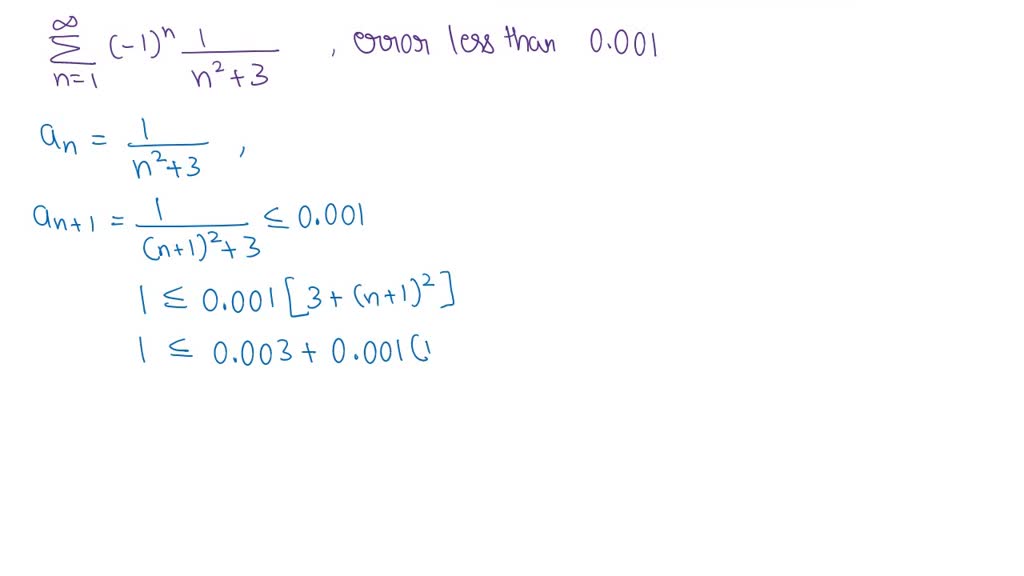 ∞∑n=1 (-1)^n 1/(n²+3) , error less than 0.001
aₙ = 1/(n²+3) ,
aₙ₊₁ = 1/((n+1)²+3) ≤ 0.001
1 ≤ 0.001[3 + (n+1)²]
1 ≤ 0.003 + 0.001(